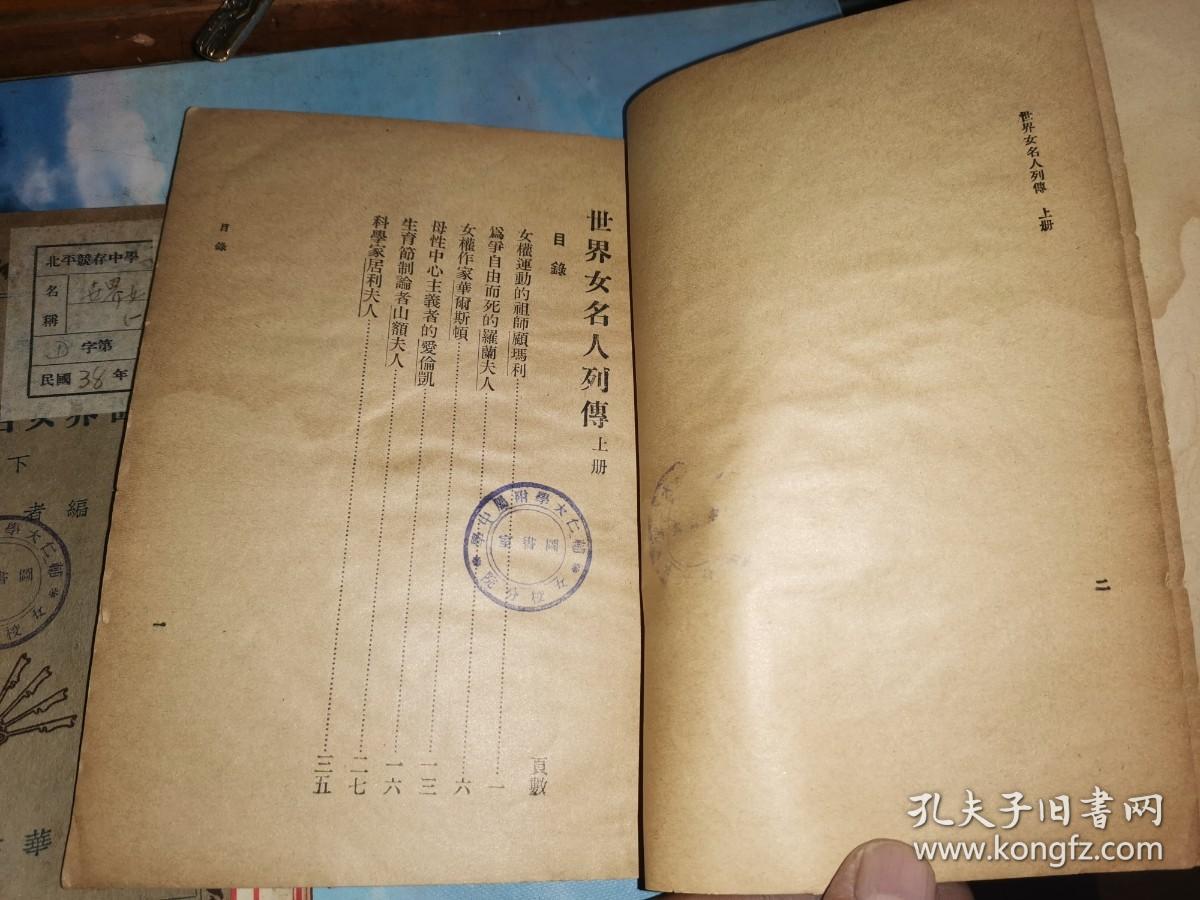 世界女名人列傳 上册
二
世界女名人列傳 上册
目錄
頁數
女權運動的祖師顧瑪利……一
爲爭自由而死的羅蘭夫人……六
女權作家華爾斯頓……一三
母性中心主義者的愛倫凱……一六
生育節制論者山額夫人……二七
科學家居利夫人……三五
目錄
一
輔仁大學附屬中學
女校分院
圖書室
北平競存中學
名稱
世界女
字第
民國38年
下
編者
華
孔夫子旧书网
www.kongfz.com